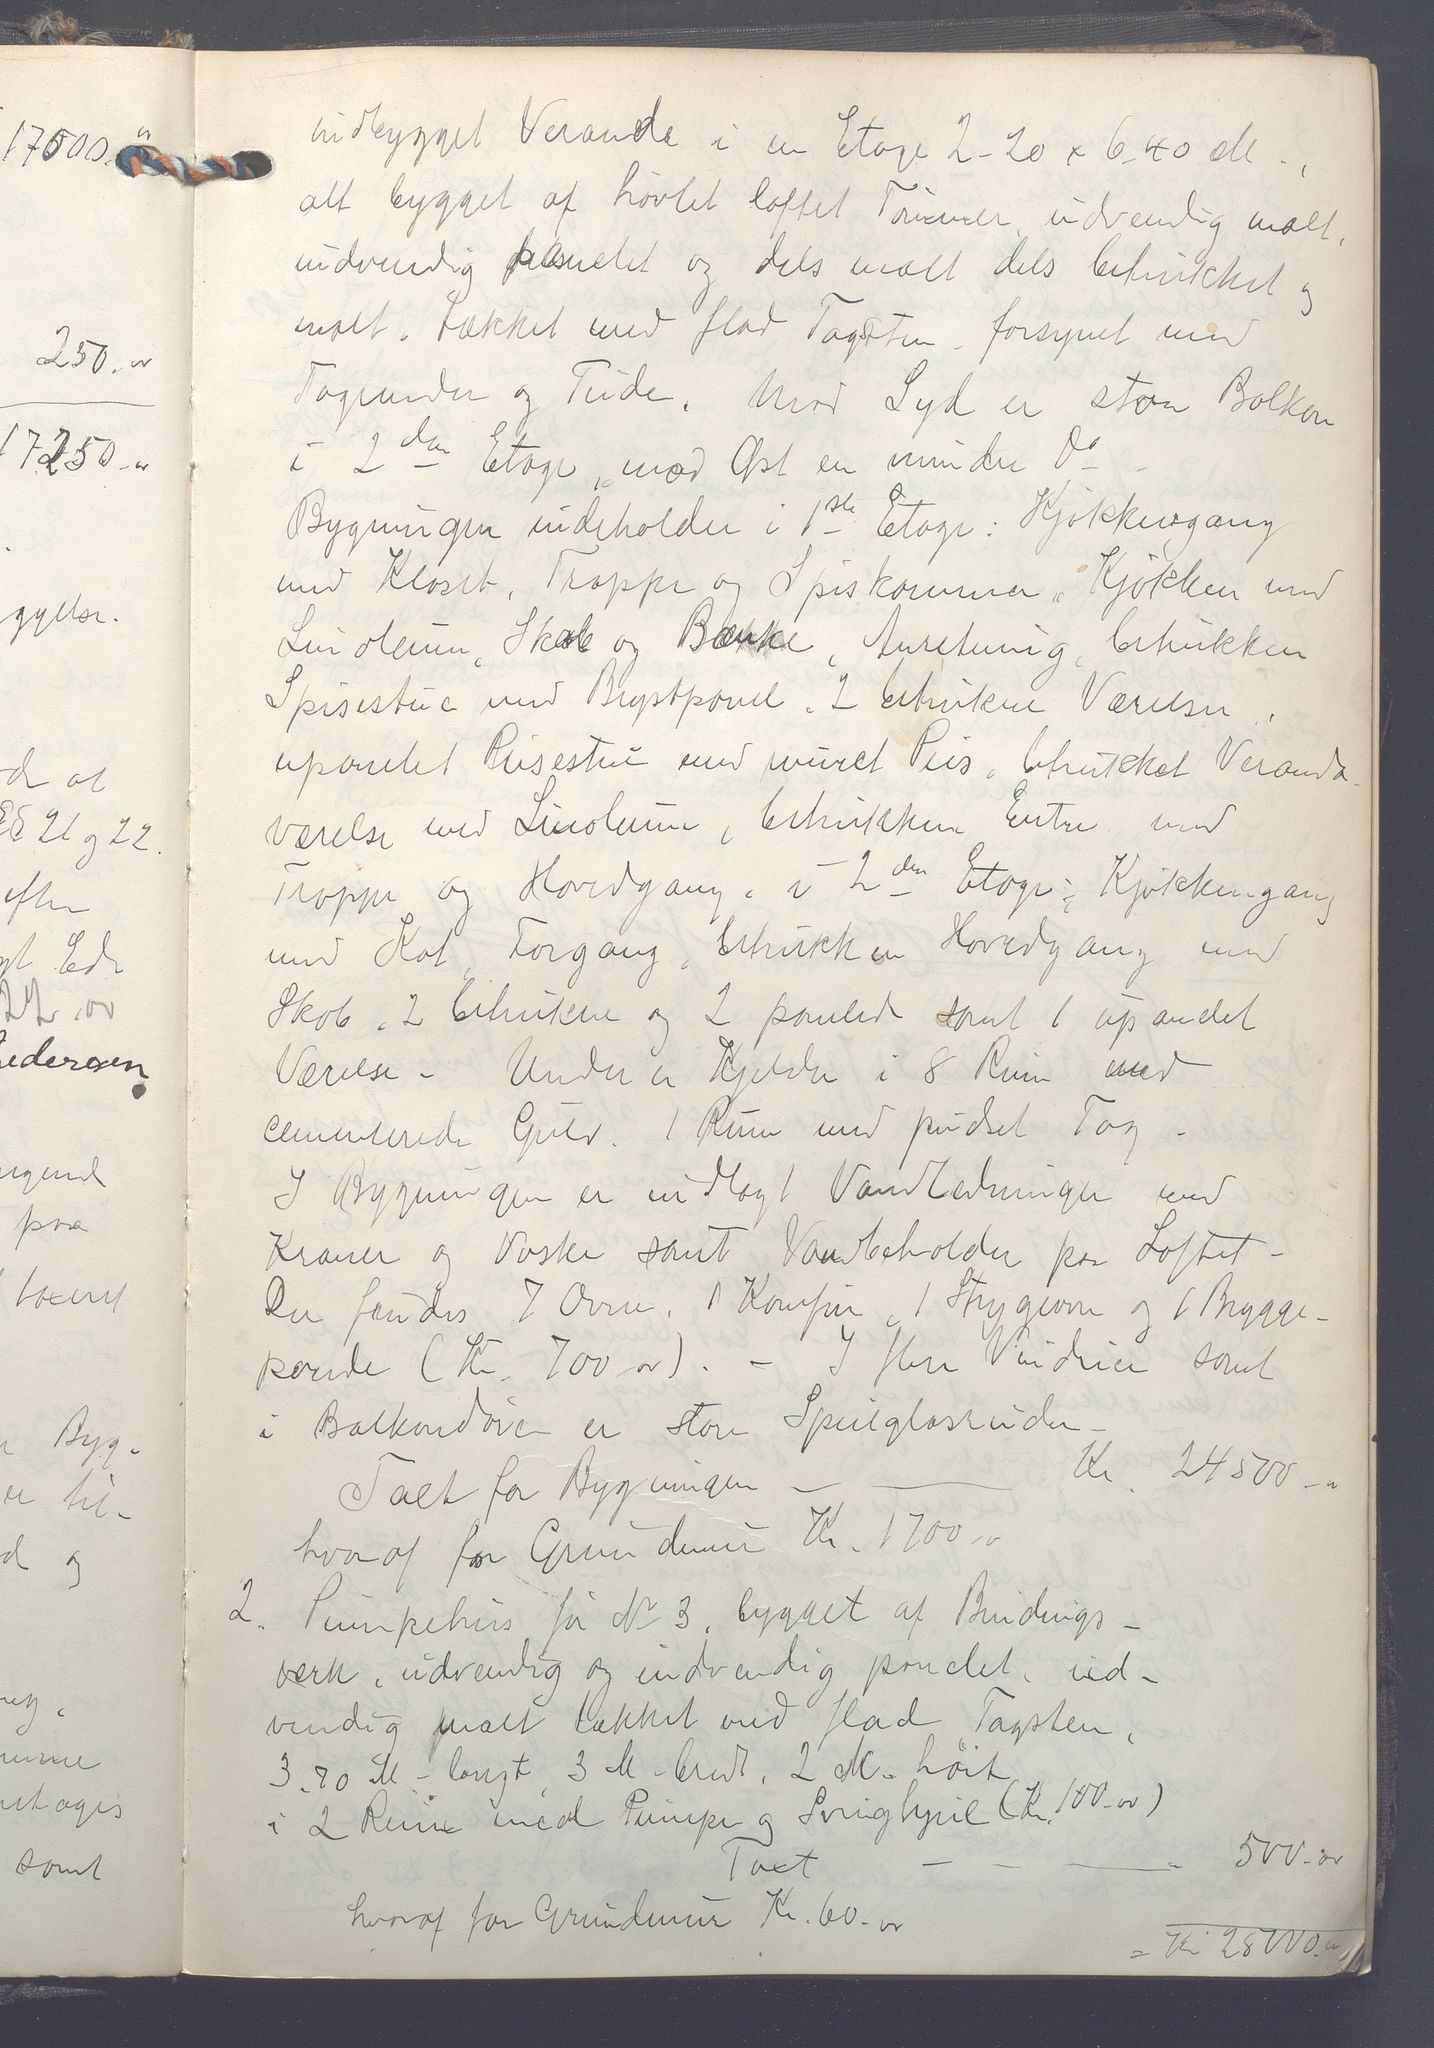 17500.00
250.00
17250.00
yggelse.
de at
§§ 21 og 22.
efter
gt Ed
Pedersen
ngende
paa
taxeret
Byg-
er til-
d og
mme
ntages
samt
indbygget Veranda i en Etage 2-20 x 6-40 M -,
alt bygget af høvlet laftet Tømmer, udvendig malt,
indvendig panelet og dels malt dels betrukket og
malt. Tækket med flad Tagsten, forsynet med
Tagrender og Nedløb. Mod Syd er stor Balkon
i 2den Etage, mod Øst en mindre Do -
Bygningen indeholder i 1ste Etage: Kjøkkengang
med Kloset, Trappe og Spiskammer, Kjøkken med
Linoleum, Skab og Bænke, Anretning, betrukken
Spisestue med Brystpanel, 2 betrukne Værelser,
upanelet Peisestue med muret Peis, betrukket Veranda-
værelse med Linoleum, betrukken Entre med
Trappe og Hovedgang. i 2den Etage: Kjøkkengang
med Kot, Forgang, betrukken Hovedgang med
Skab, 2 betrukne og 2 panelede samt 1 upanelet
Værelse - Under er Kjelder i 8 Rum med
cementerede Gulv. 1 Rum med pudset Tag -
I Bygningen er indlagt Vandledninger med
Kraner og Vaske samt Vandbeholder paa Loftet -
Der findes 7 Ovne, 1 Komfur, 1 Strygeovn og 1 Brygge-
pande (Kr. 700.00). - I flere Vinduer samt
i Balkondøre er store Speilglasruder -
Taxt for Bygningen - Kr. 24500.00
hvoraf for Grundmur Kr. 1700.00
2. Pumpehus for No 3, bygget af Bindings-
værk, udvendig og indvendig panelet, ud-
vendig malt tækket med flad Tagsten,
3.70 M - langt, 3 M - bredt, 2 M - høit
i 2 Rum med Pumpe og Svinghjul (Kr. 100.00)
Taxt - - - 500.00
hvoraf for Grundmur Kr. 60.00
= Kr 25000.00